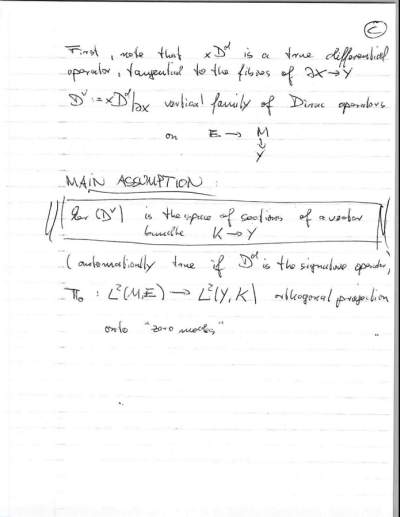 C
First, note that xD^d is a true differential
operator, tangential to the fibres of ∂X → Y
D^V := xD^d|∂X vertical family of Dirac operators
on E → M
↓
Y
MAIN ASSUMPTION:
Ker (D^V) is the space of sections of a vector
bundle K → Y
(automatically true if D^d is the signature operator)
Π₀ : L²(M,E) → L²(Y,K) orthogonal projection
onto "zero modes"